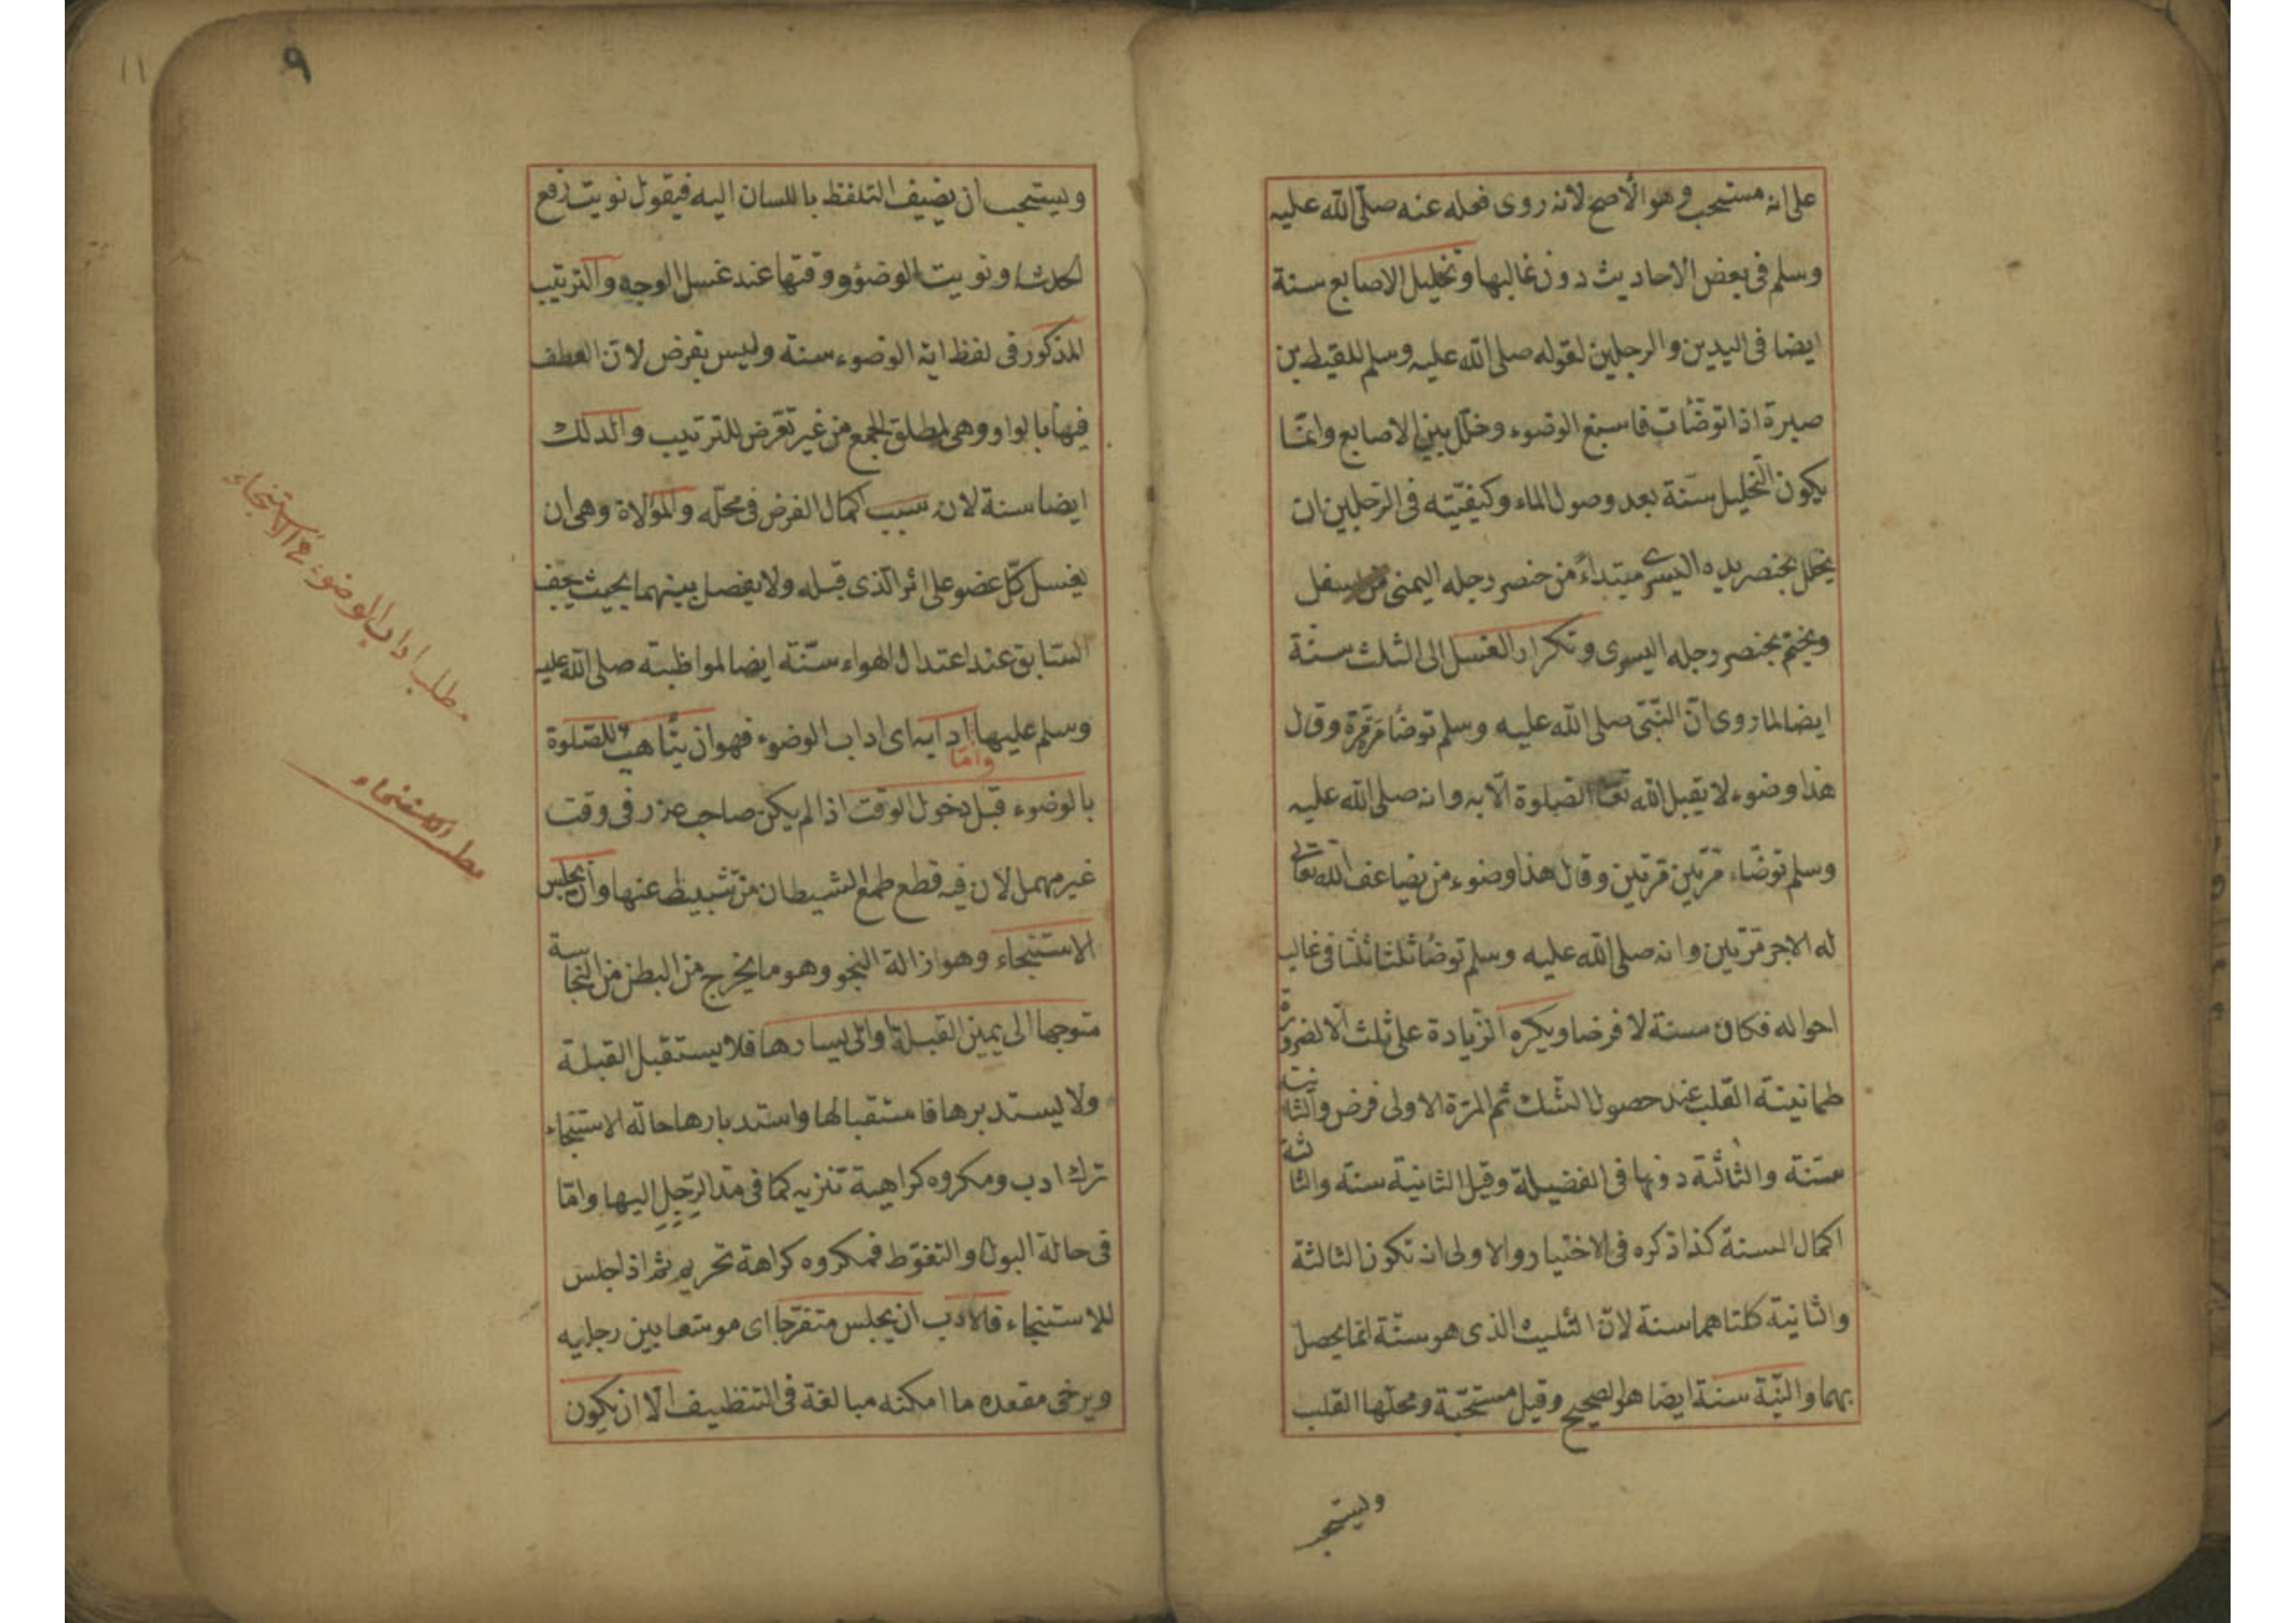 على انه مستحب وهو الاصح لانه روى فعله عنه صلى الله عليه
وسلم فى بعض الاحاديث دون غالبها وتخليل الاصابع سنة
ايضا فى اليدين والرجلين لقوله صلى الله عليه وسلم للقيط بن
صبرة اذا توضأت فاسبغ الوضوء وخلل بين الاصابع وانما
يكون التخليل سنة بعد وصول الماء وكيفيته فى الرجلين ان
يخلل بخنصر يده اليسرى مبتداء من خنصر رجله اليمنى من اسفل
ويختم بخنصر رجله اليسرى وتكرار الغسل الى الثلث سنة
ايضا لما روى ان النبى صلى الله عليه وسلم توضأ مرة مرة وقال
هذا وضوء لا يقبل الله تعا الصلوة الا به وانه صلى الله عليه
وسلم توضاء مرتين مرتين وقال هذا وضوء من يضاعف الله تعالى
له الاجر مرتين وانه صلى الله عليه وسلم توضأ ثلثا ثلثا فى غالب
احواله فكان سنة لا فرضا ويكره الزيادة على ثلث الا لضرورة
طمانينة القلب عند حصول الشك ثم المرة الاولى فرض والثانية
سنة والثالثة دونها فى الفضيلة وقيل الثانية سنة والثالثة
اكمال السنة كذا ذكره فى الاختيار والاولى ان تكون الثالثة
والثانية كلتاهما سنة لان التثليث الذى هو سنة انما يحصل
بهما والنية سنة ايضا هو الصحيح وقيل مستحبة ومحلها القلب
ويستحب
٩
١١
ويستحب ان يضيف التلفظ باللسان اليه فيقول نويت رفع
الحدث او نويت الوضوء ووقتها عند غسل الوجه والترتيب
المذكور فى لفظ اية الوضوء سنة وليس بفرض لان العطف
فيها بالواو وهى لمطلق الجمع من غير تعرض للترتيب والدلك
ايضا سنة لانه سبب اكمال الفرض فى محله والموالاة وهى ان
يغسل كل عضو على اثر الذى قبله ولا يفصل بينهما بحيث يجف
السابق عند اعتدال الهواء سنة ايضا لمواظبته صلى الله عليه
وسلم عليها وامّا ادابه اى اداب الوضوء فهو ان يتأهب للصلوة
بالوضوء قبل دخول الوقت اذا لم يكن صاحب عزر فى وقت
غير مهمل لان فيه قطع طمع الشيطان من تثبيطه عنها وان يجلس
الاستنجاء وهو ازالة النجو وهو ما يخرج من البطن من النجاسة
متوجها الى يمين القبلة او الى يسارها فلا يستقبل القبلة
ولا يستدبرها فاستقبالها واستدبارها حالة الاستنجاء
ترك ادب ومكروه كراهية تنزيه كما فى مد الرجل اليها واما
فى حالة البول والتغوط فمكروه كراهة تحريم ثم اذا جلس
للاستنجاء فالادب ان يجلس متفرجا اى موسعا بين رجليه
ويرخى مقعده ما امكنه مبالغة فى التنظيف الا ان يكون
مطلب اداب الوضوء فى الاستنجاء
مطلب الاستنجاء